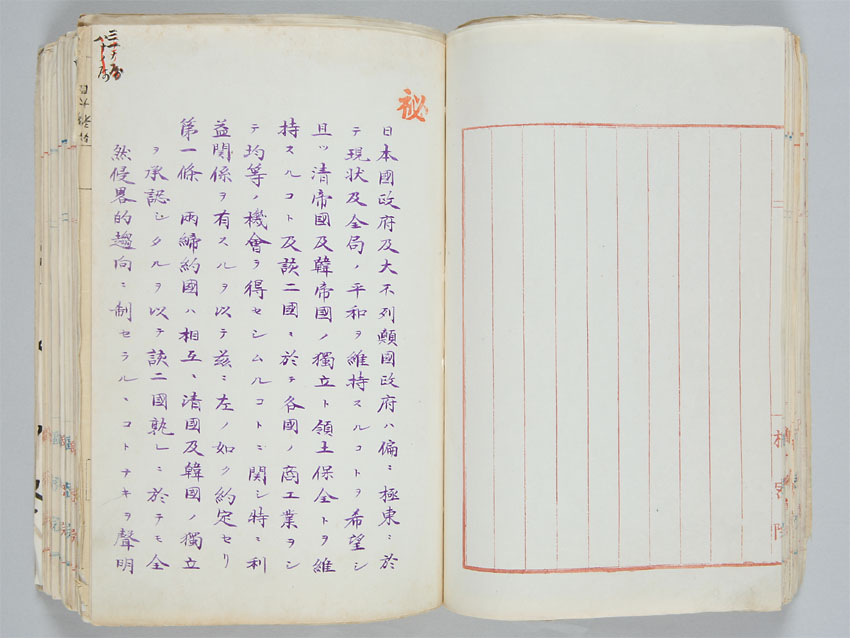 秘
日本國政府及大不列顛國政府ハ偏ニ極東ニ於
テ現状及全局ノ平和ヲ維持スルコトヲ希望シ
且ツ清帝國及韓帝國ノ獨立ト領土保全トヲ維
持スルコト及該二國ニ於テ各國ノ商工業ヲシ
テ均等ノ機會ヲ得セシムルコトニ関シ特ニ利
益関係ヲ有スルヲ以テ茲ニ左ノ如ク約定セリ
第一條 両締約國ハ相互ニ清國及韓國ノ獨立
ヲ承認シタルヲ以テ該二國孰レニ於テモ全
然侵畧的趨向ニ制セラルヽコトナキヲ聲明